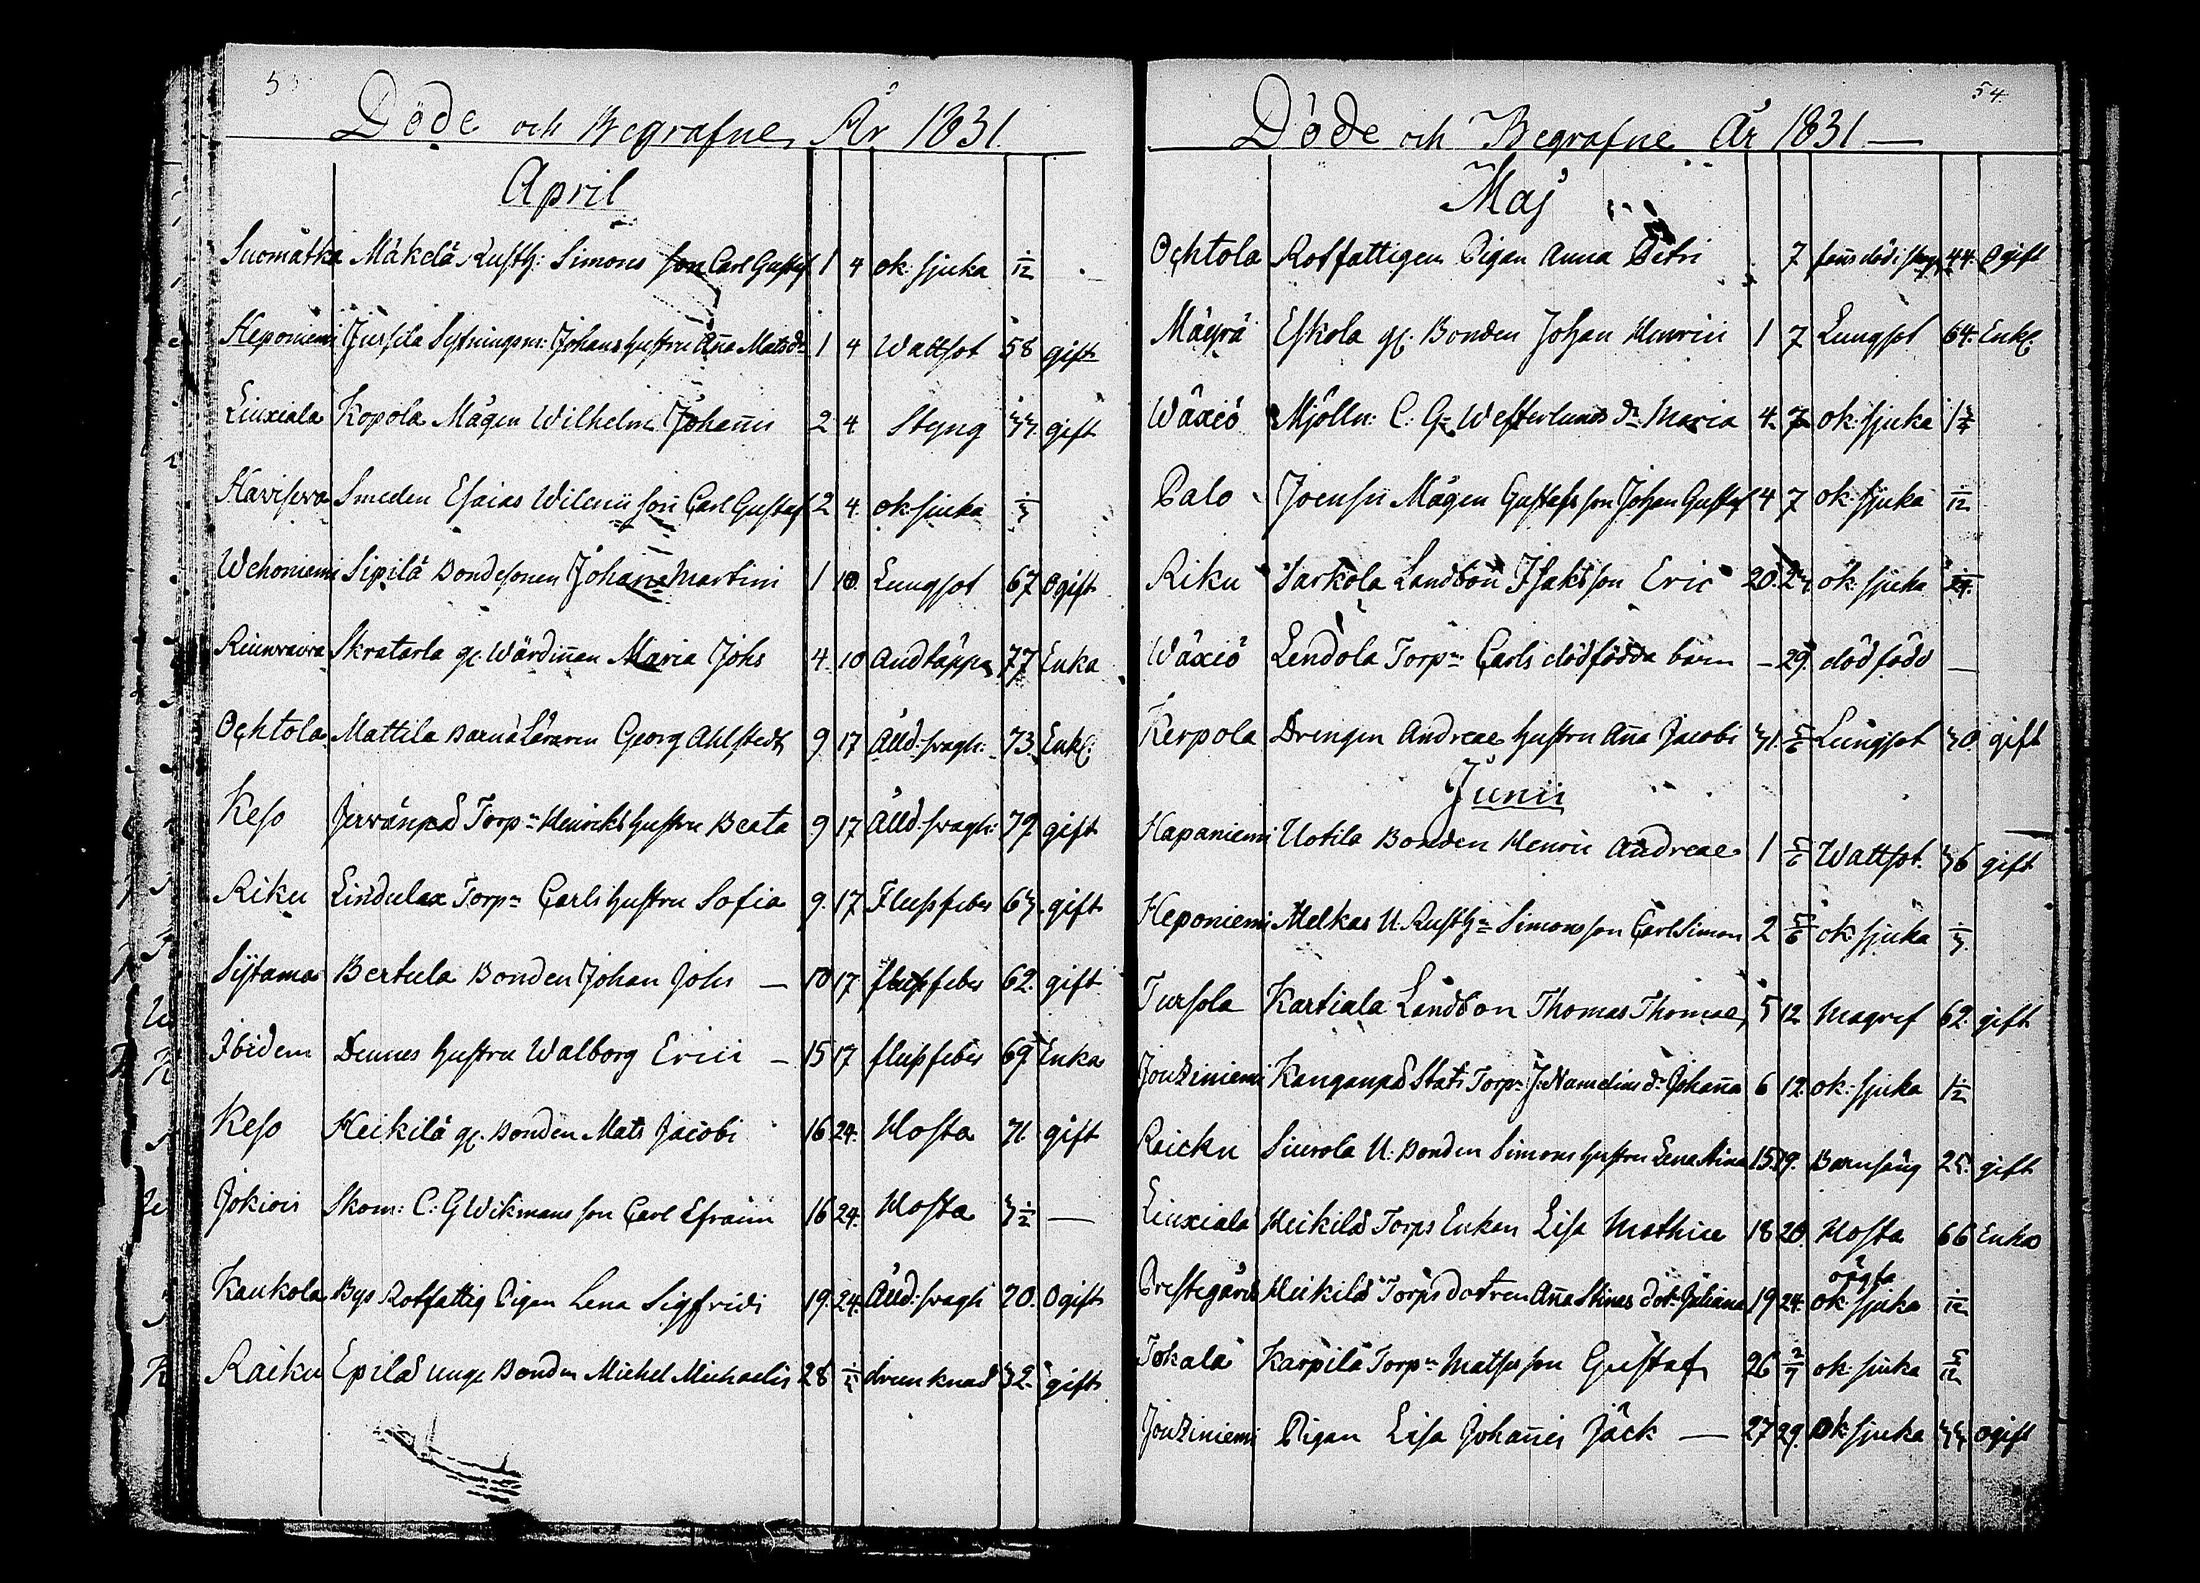 Döde och Begrafne År 1831
April
Suomätkä Mäkelä Rusth: Simons son Carl Gustaf 1 4 ok: sjuka 1/12
Heponiemi Jussila Sytningsm: Johans hustru Aña Matsdr 1 4 Wattsot 58 gift
Liuxiala Kopola Mågen Wilhelm Johañis 2 4 Styng 33 gift
Smeden Esaias Wilenii son Carl Gustaf 2 4 ok sjuka 1/3
Wehoniemi Sipilä Bondesonen Johan Martini 1 10 Lungsot 67 Ogift
gl. Wärdiñan Maria Johs 4 10 Andtäppa 77 Enka
Ochtola Mattila Barnaläraren Georg Ahlstedt 9 17 Ålld: svagh: 73 Enkl:
Keso Torpn Henriks hustru Beata 9 17 Ålld: svagh: 79 gift
Riku Lindulax Torpn Carls hustru Sofia 9 17 Flussfeber 63 gift
Sijtama Bertula Bonden Johan Johs — 10 17 flussfeber 62 gift
Ibidem hustru Walborg Erici — 15 17 flussfeber 69 Enka
Keso Heikilä gl. Bonden Mats Jacobi 16 24 Hosta 71 gift
Jokiois Skom: C: G Wikmans son Carl Efraim 16 24 Hosta 3 1/2 —
Kaukola Bys Rotfattig Pigan Lena Sigfridi 19 24 Ålld: svagh 70 Ogift
Raiku Epilä unge Bonden Michel Michaelis 28 1/5 drunknad 32 gift
54
Döde och Begrafne År 1831 —
Maj
Ochtola Rotfattigen Pigan Anna Petri 7 44 Ogift
Mäyrä Eskola gl. Bonden Johan Henrici 1 7 Lungsot 64 Enkl:
Wäxiö Mjölln: C: G Westerlunds dr Maria 4 7 ok: sjuka
Palo Joensu Mågen Gustafs son Johan Gustaf 4 7 ok: sjuka
Riku Sarkola Landbon Isaks son Eric 20 ok: sjuka
Wäxiö Lendola Torpn Carls dödfödda barn — 29 död född —
Kerpola Drengen Andreae hustru Aña Jacobi 31 5/6 Lungsot 30 gift
Junii
Hapaniemi Uotila Bonden Henric Andreae 1 5/6 Wattsot 36 gift
Heponiemi Melkas U. Rusthn Simons son Carl Simon 2 5/6 ok: sjuka 1/3
Tursola Kartiala Landbon Thomas Thomae 5 12 Magref 62 gift
Jouziniemi Kanganpä Stats Torpn J: Namelius dr Johaña 6 12 ok: sjuka
Raicku Siurola U: Bonden Simons hustru Lena Stina 15 19 Barnsäng 25 gift
Liuxiala Heikilä Torps Enkan Lisa Mathiae 18 20 Hosta 66 Enka
Prestegård Heikilä Torps dotren Aña Stinas dot: Juliana 19 24 oägta ok: sjuka
Tokala Karpilä Torpn Mats son Gustaf 26 3/7 ok: sjuka 5/12
Jouziniemi Pigan Lisa Johañis Jäck — 27 29 ok sjuka 33 ogift